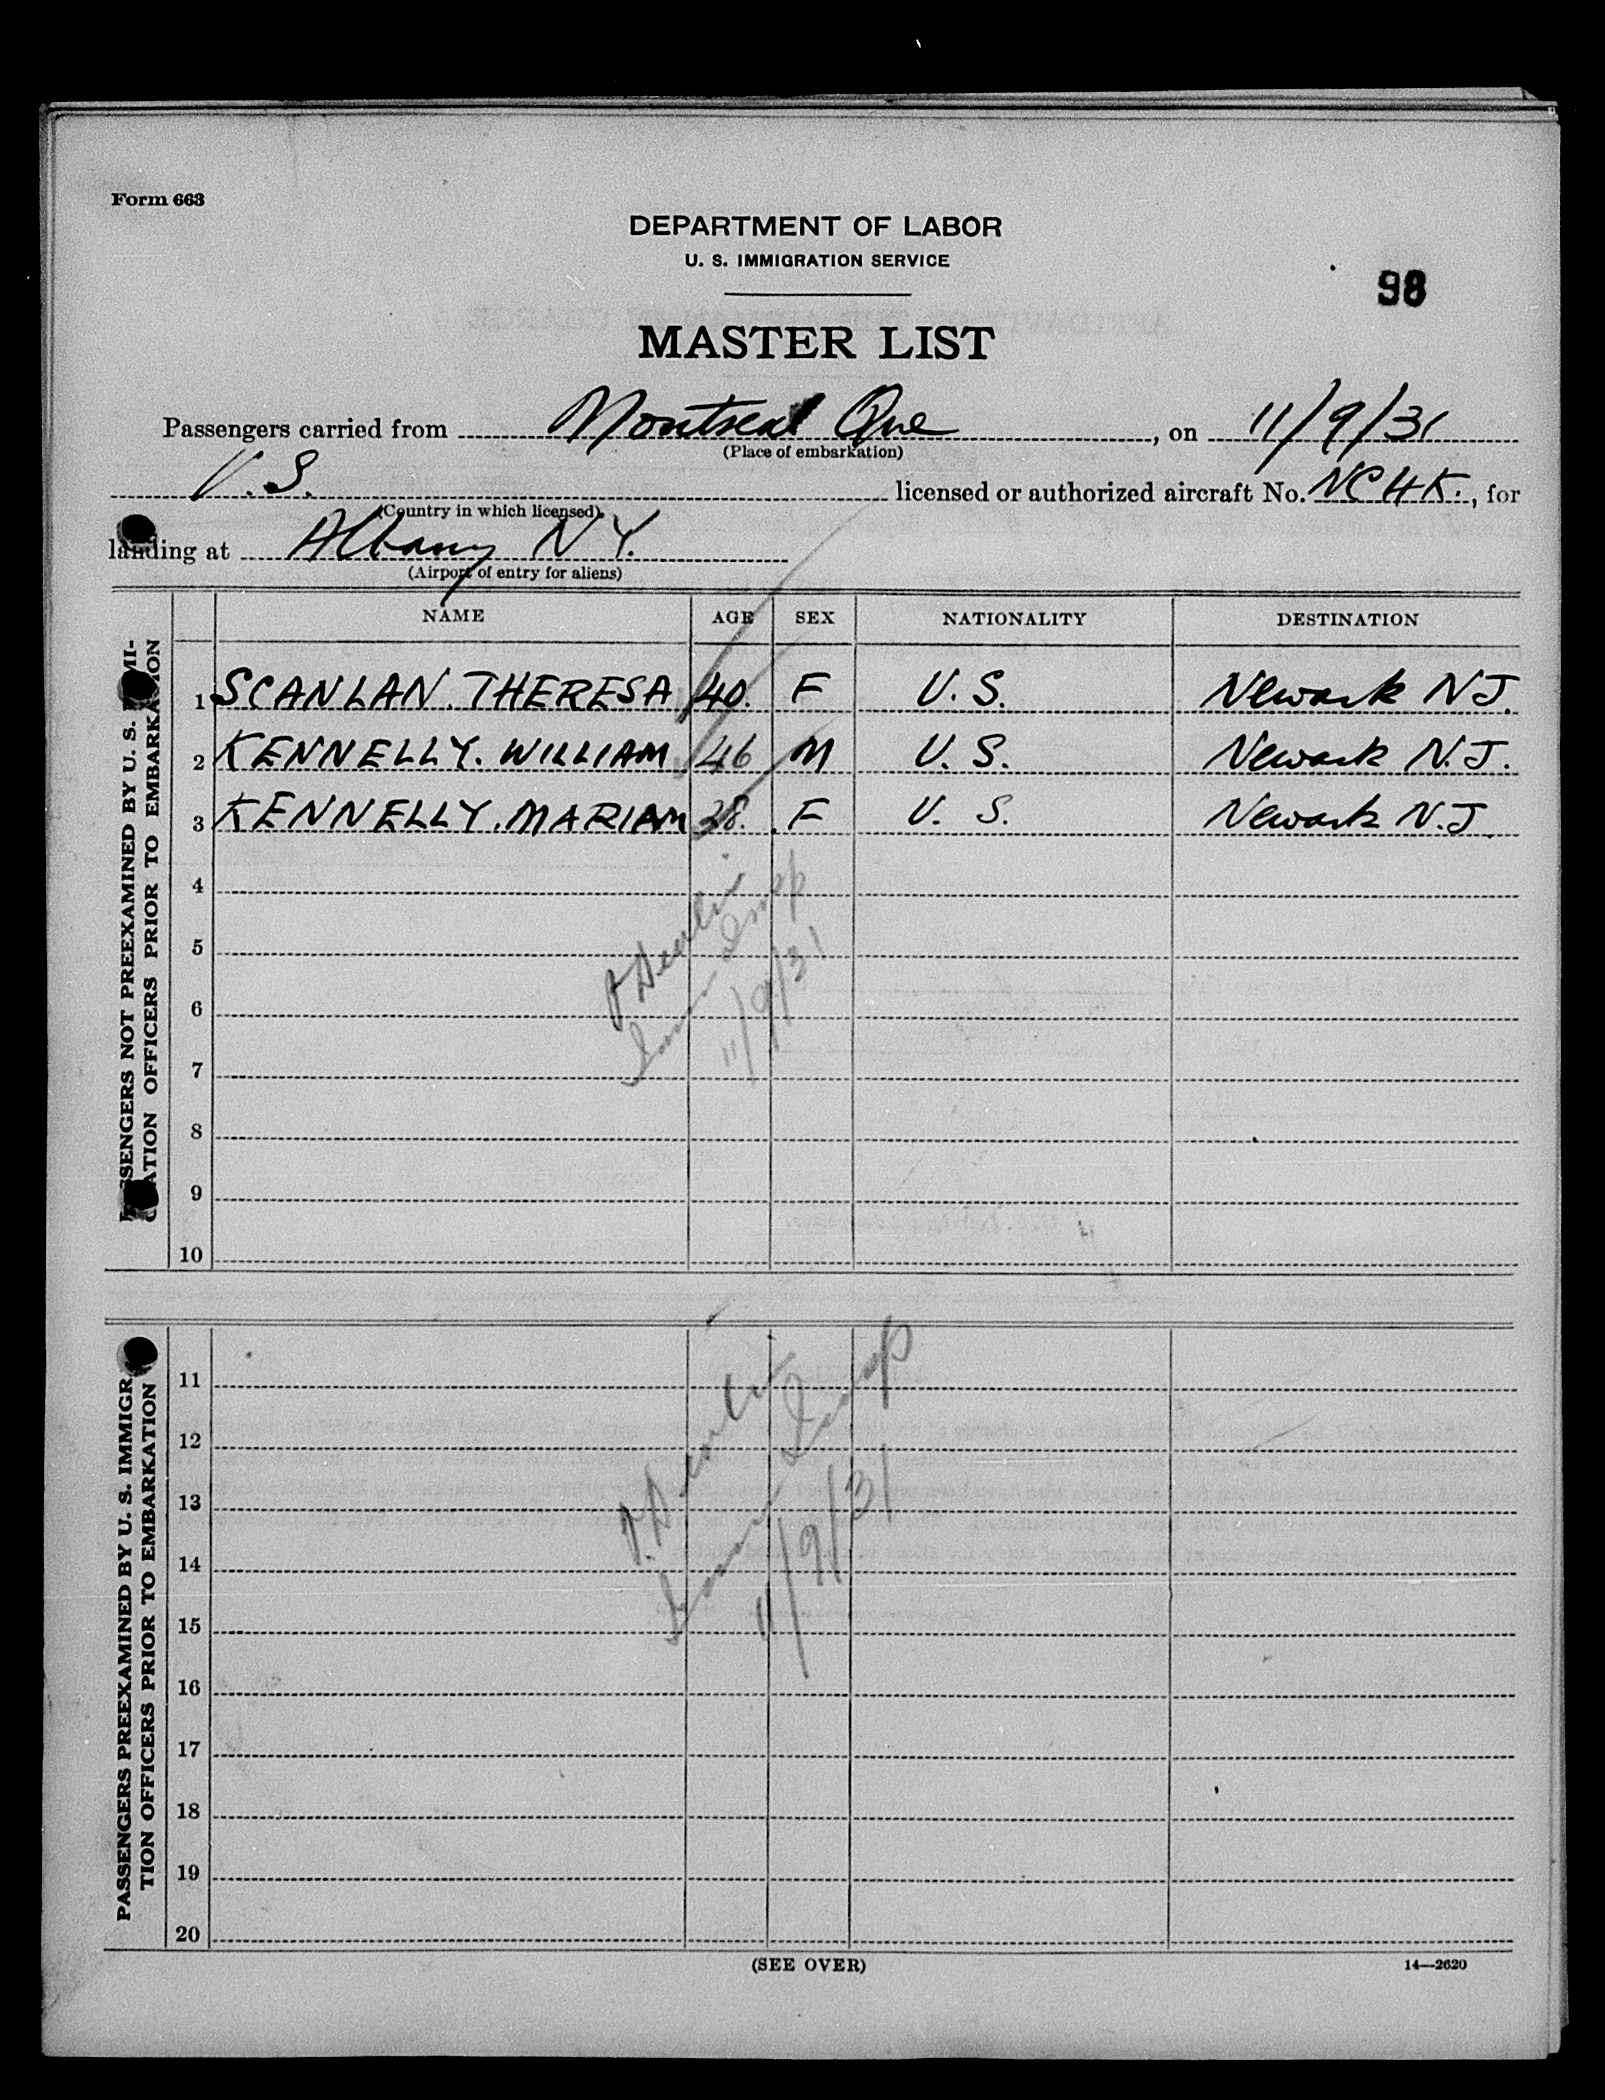 Form 663
DEPARTMENT OF LABOR
U. S. IMMIGRATION SERVICE
98
MASTER LIST
Passengers carried from Montreal Que, on 11/9/31
(Place of embarkation)
U.S. licensed or authorized aircraft No. NC4K., for
(Country in which licensed)
landing at Albany N Y.
(Airport of entry for aliens)
NAME AGE SEX NATIONALITY DESTINATION
PASSENGERS NOT PREEXAMINED BY U. S. IMMI-
GRATION OFFICERS PRIOR TO EMBARKATION
1 SCANLAN. THERESA 40. F U. S. Newark N J.
2 KENNELLY. WILLIAM 46 M U. S. Newark N. J.
3 KENNELLY. MARIAM 38. F U. S. Newark N. J.
4
5
6
7
8
9
10
Insp
11/9/31
PASSENGERS PREEXAMINED BY U. S. IMMIGRA-
TION OFFICERS PRIOR TO EMBARKATION
11
12
13
14
15
16
17
18
19
20
Insp
11/9/31
(SEE OVER)
14—2620